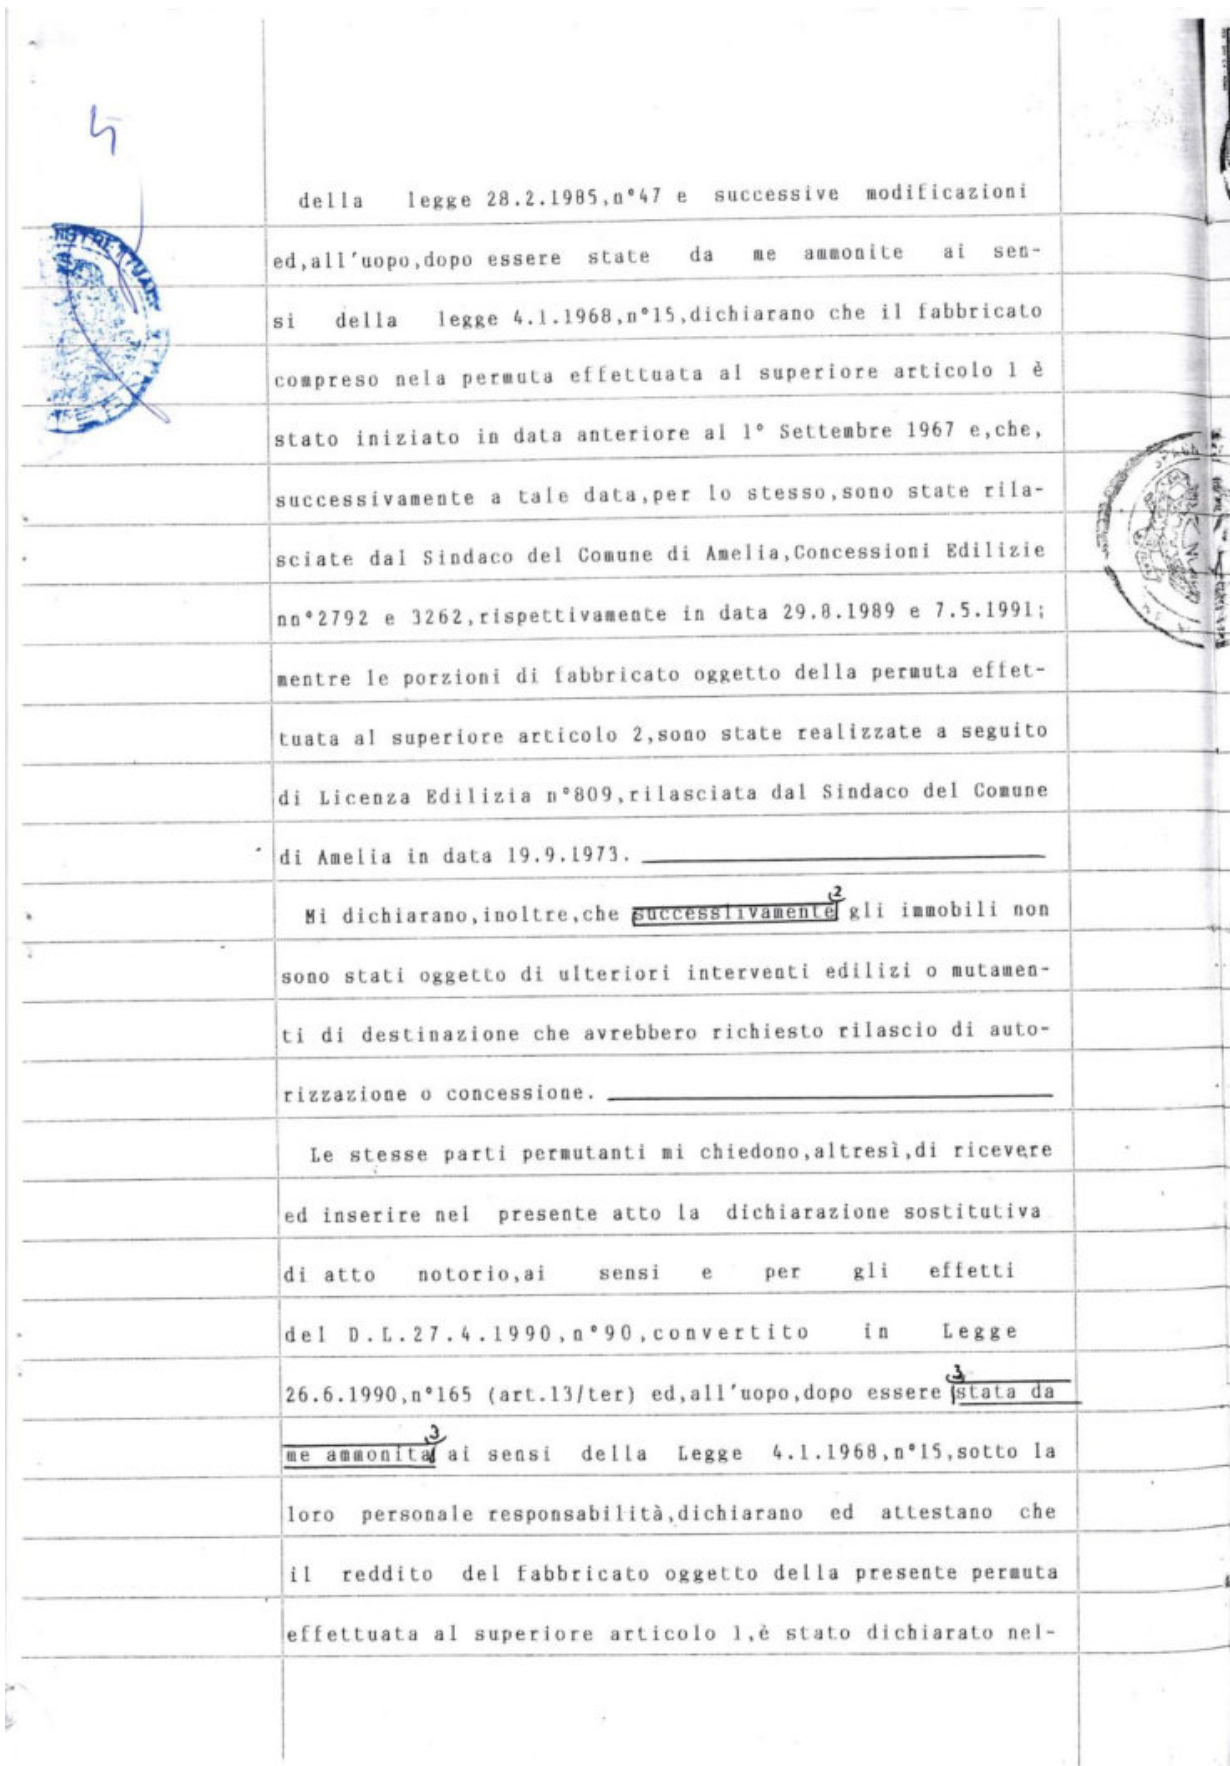 della legge 28.2.1985,n°47 e successive modificazioni
ed,all'uopo,dopo essere state da me ammonite ai sen-
si della legge 4.1.1968,n°15,dichiarano che il fabbricato
compreso nela permuta effettuata al superiore articolo 1 è
stato iniziato in data anteriore al 1° Settembre 1967 e,che,
successivamente a tale data,per lo stesso,sono state rila-
sciate dal Sindaco del Comune di Amelia,Concessioni Edilizie
nn°2792 e 3262,rispettivamente in data 29.8.1989 e 7.5.1991;
mentre le porzioni di fabbricato oggetto della permuta effet-
tuata al superiore articolo 2,sono state realizzate a seguito
di Licenza Edilizia n°809,rilasciata dal Sindaco del Comune
di Amelia in data 19.9.1973.
Mi dichiarano,inoltre,che successlivamente 2 gli immobili non
sono stati oggetto di ulteriori interventi edilizi o mutamen-
ti di destinazione che avrebbero richiesto rilascio di auto-
rizzazione o concessione.
Le stesse parti permutanti mi chiedono,altresì,di ricevere
ed inserire nel presente atto la dichiarazione sostitutiva
di atto notorio,ai sensi e per gli effetti
del D.L.27.4.1990,n°90,convertito in Legge
26.6.1990,n°165 (art.13/ter) ed,all'uopo,dopo essere 3 stata da
me ammonita 3 ai sensi della Legge 4.1.1968,n°15,sotto la
loro personale responsabilità,dichiarano ed attestano che
il reddito del fabbricato oggetto della presente permuta
effettuata al superiore articolo 1,è stato dichiarato nel-